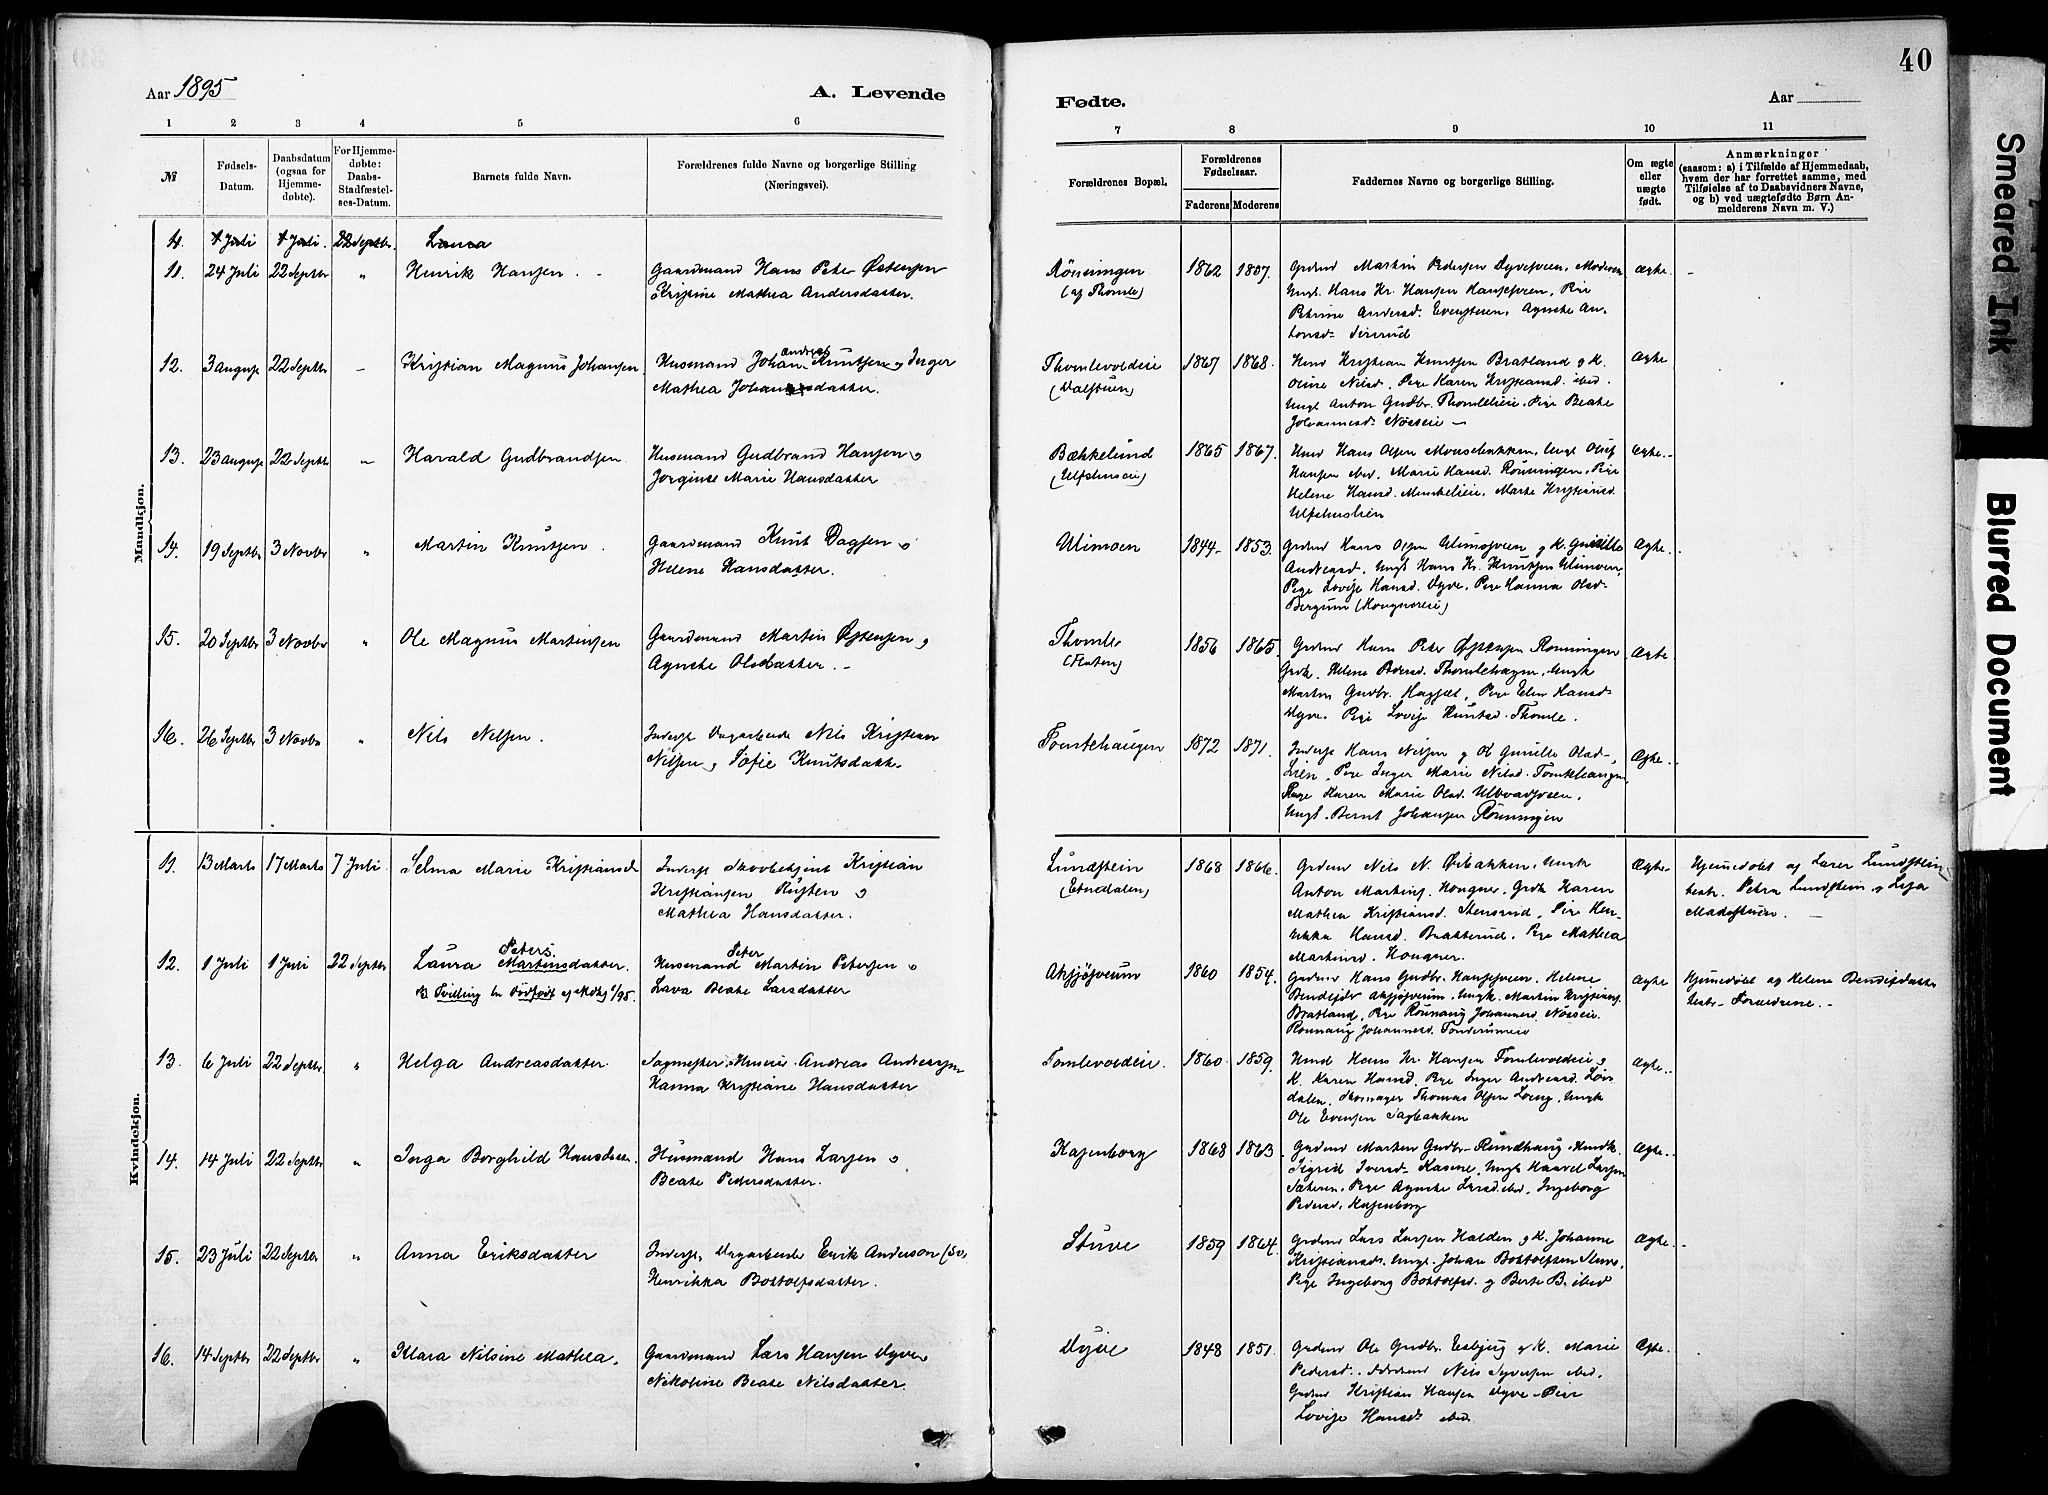 40
Aar 1895
A. Levende
Fødte.
Aar
1 2 3 4 5 6 7 8 9 10 11
№
Fødsels-Datum.
Daabsdatum (ogsaa for Hjemmedøbte).
For Hjemmedøbte: Daabs-Stadfæstelses-Datum.
Barnets fulde Navn.
Forældrenes fulde Navne og borgerlige Stilling (Næringsvei).
Forældrenes Bopæl.
Forældrenes Fødselsaar.
Faderens Moderens
Faddernes Navne og borgerlige Stilling.
Om ægte eller uægte født.
Anmærkninger
(saasom: a) i Tilfælde af Hjemmedaab, hvem der har forrettet samme, med Tilføielse af to Daabsvidners Navne, og b) ved uægtefødte Børn Anmelderens Navn m. V.)
Mandkjøn.
11. 24 Juli 22 Septbr " Henrik Hansen
Gaardmand Hans Peter Østensen
Kristine Mathea Andersdatter.
Rönningen
(af Thomle)
1862 1857.
Grdmd Martin Pedersen Dyvesveen, Moderen
Ungk. Hans Kr. Hansen Hansesveen, Pige
Petrine Andersd. Evensteren, Agnethe An-
tonsd.
Ægte.
12. 3 August 22 Septbr Kristian Magnus Johansen
Husmand Johan Andreas Knutsen og Inger
Mathea Johansdatter.
Thomlevoldeie
1867 1868.
Husmd Kristian Knutsen Bratland og K.
Oline Nilsd, Pige Karen Kristiansd. ibid.
Ungk Anton Gudbr. Thomleieie. Pige Beate
Johannesd. Nösseie
Ægte
13. 23 August 22 Septbr Harald Gudbrandsen
Husmand Gudbrand Hansen og
Jorgine Marie Hansdatter
Bækkelund
(Ulfshuseie)
1865 1867.
Husmd Hans Olsen Monsebakken, Ungk Oluf
Hansen ibid, Marie Hansd. Rönningen, Pige
Helene Hansd. Minkelieie. Marte Kristiansd
Ulfshuslien
Ægte.
14. 19 Septbr 3 Novbr " Martin Knutsen.
Gaardmand Knut Dagsen og
Helene Hansdatter.
Ulimoen
1844 1853.
Grdmd Hans Olsen Ulimosveen og K. Gunilde
Andreasd, Ungk Hans Kr. Knutsen Ulimoen,
Pige Lovise Hansd. Dyve, Pige Hanna Olsd
Bergum (Hougnereie)
Ægte.
15. 20 Septbr 3 Novbr " Ole Magnus Martinsen
Gaardmand Martin Østensen og
Agnethe Olsdatter.
Thomle
1856 1865.
Grdmd Hans Peter Østensen Rönningen
Martin Gudbr. Pige Elen Hansd
Dyve. Pige Lovise Knutsd. Thomle.
Ægte
16. 26 Septbr 3 Novbr " Nils Nilsen.
Inderst Dagarbeide Nils Kristian
Nilsen og Sofie Knutsdatter
Tomlehaugen
1872 1871.
Inderst Hans Nilsen og K Gunille Olsd
Lien, Pige Inger Marie Nilsd. Tomlehaugen
Pige Karen Marie Olsd.
Ungk. Bernt Johansen Rönningen
Ægte.
Kvindekjøn.
11. 13 Marts 17 Marts 7 Juli Selma Marie Kristiansd
Inderst Skovbetjent Kristian
Kristiansen Rusten og
Mathea Hansdatter.
Lundstein
(Etnedalen)
1868 1866.
Grdmd Nils N. Øibakken, Ungk
Anton Martins. Hougner, Grdk Karen
Mathea Kristiansd. Stensrud, Pige Hen-
rikka Hansd. Bratterud, Pige Mathea
Martinsd. Hougner.
Ægte
Hjemmedöbt af Lærer Lundstein
testr. Petra Lundstein og Lisa
12. 1 Juli 1 Juli 22 Septbr Laura Peters. Martinsdatter.
Husmand Peter Martin Petersen og
Lava Beate Larsdatter
Aksjøsveum
1860 1854.
Grdmd Hans Gudbr. Hansesveen, Helene
Bendiksdr Aksjøsveum. Ungk. Martin Kristians.
Bratland, Pige Rönnaug Johannesd. Nösseie.
Rönnaug Johannesd.
Ægte
Hjemmedöbt af Helene Bendiksdatter
testr. Forældrene.
13. 6 Juli 22 Septbr. " Helga Andreasdatter.
Sagmester, Huseier Andreas Andreassen
Hanna Kristiane Hansdatter
Tomlevoldeie.
1860 1859.
Husmd Hans Kr. Hansen Tomlevoldeie og
K. Karen Hansd, Pige Inger Andreasd. Løv-
dalen, Skomager Thomas Olsen Loeng, Ungk
Ole Evensen Sagbakken
Ægte.
14. 14 Juli 22 Septbr " Inga Borghild Hansdatter
Husmand Hans Larsen og
Beate Pedersdatter.
Kasenborg
1868 1863.
Grdmd Martin Gudbr. Rundhaug, Husmdk.
Sigrid Iversd. Kasene, Ungk Haavel Larsen
Sæteren, Pige Agnethe Larsd. ibid, Ingeborg
Pedersd, Kasenborg
Ægte.
15. 23 Juli 22 Septbr " Anna Eriksdatter
Inderst, Dagarbeider Erik Anderson (Sv.
Henrikka Bottolfsdatter.
Stuve
1859 1864.
Grdmd Lars Larsen Halden og K. Johanne
Kristiansd. Ungk. Johan Bottolfsen Stuve,
Pige Ingeborg Bottolfsd. og Berte B. ibid
Ægte.
16. 14 Septbr 22 Septbr " Klara Nilsine Mathea.
Gaardmand Lars Hansen Dyve og
Nikoline Beate Nilsdatter.
Dyve
1848 1851.
Grdmd Ole Gudbr. Esbjug og K. Marie
Pedersd. Nils Syversen ibid,
Grdmd Kristian Hansen Dyve. Pige
Lovise Hansd. ibid
Ægte.
Smeared Ink
Blurred Document